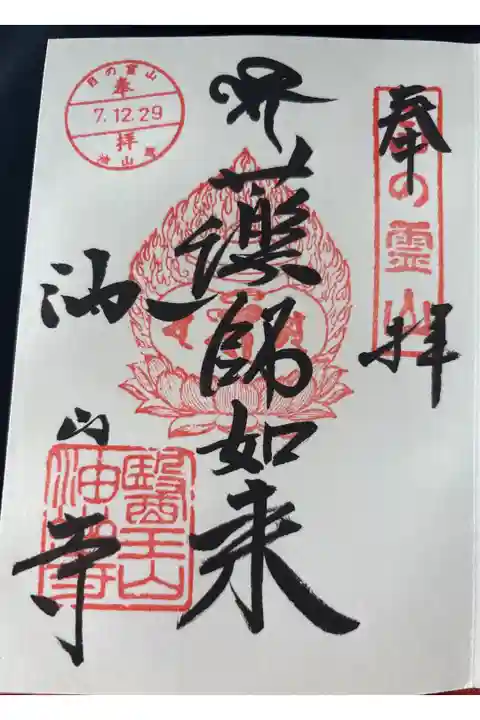 奉拝
目の霊山
薬師如来
油山寺
醫王山
油山寺
目の霊山
奉
7.12.29
拝
油山寺